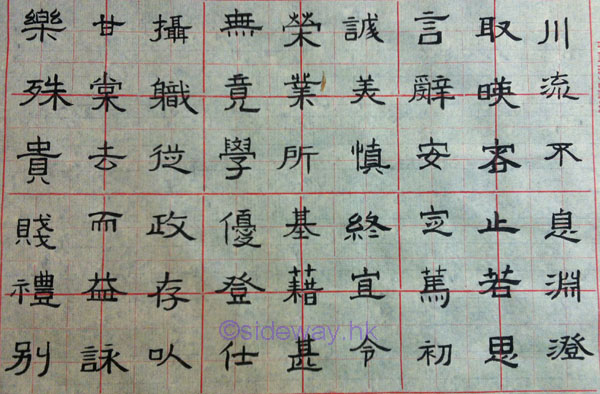 川流不息淵澄
取暎容止若思
言辭安定篤初
誠美慎終宜令
榮業所基藉甚
無竟學優登仕
攝職從政存以
甘棠去而益詠
樂殊貴賤禮别
©sideway.hk